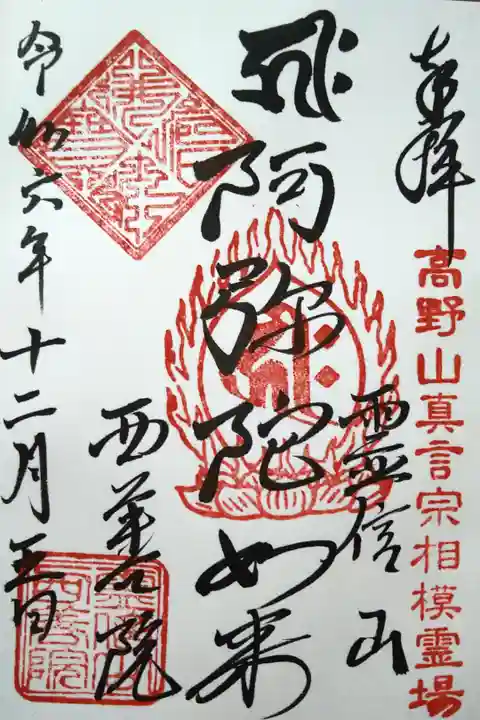 奉拝
高野山真言宗相模霊場
霊信山
阿弥陀如来
西善院
令和六年十二月五日